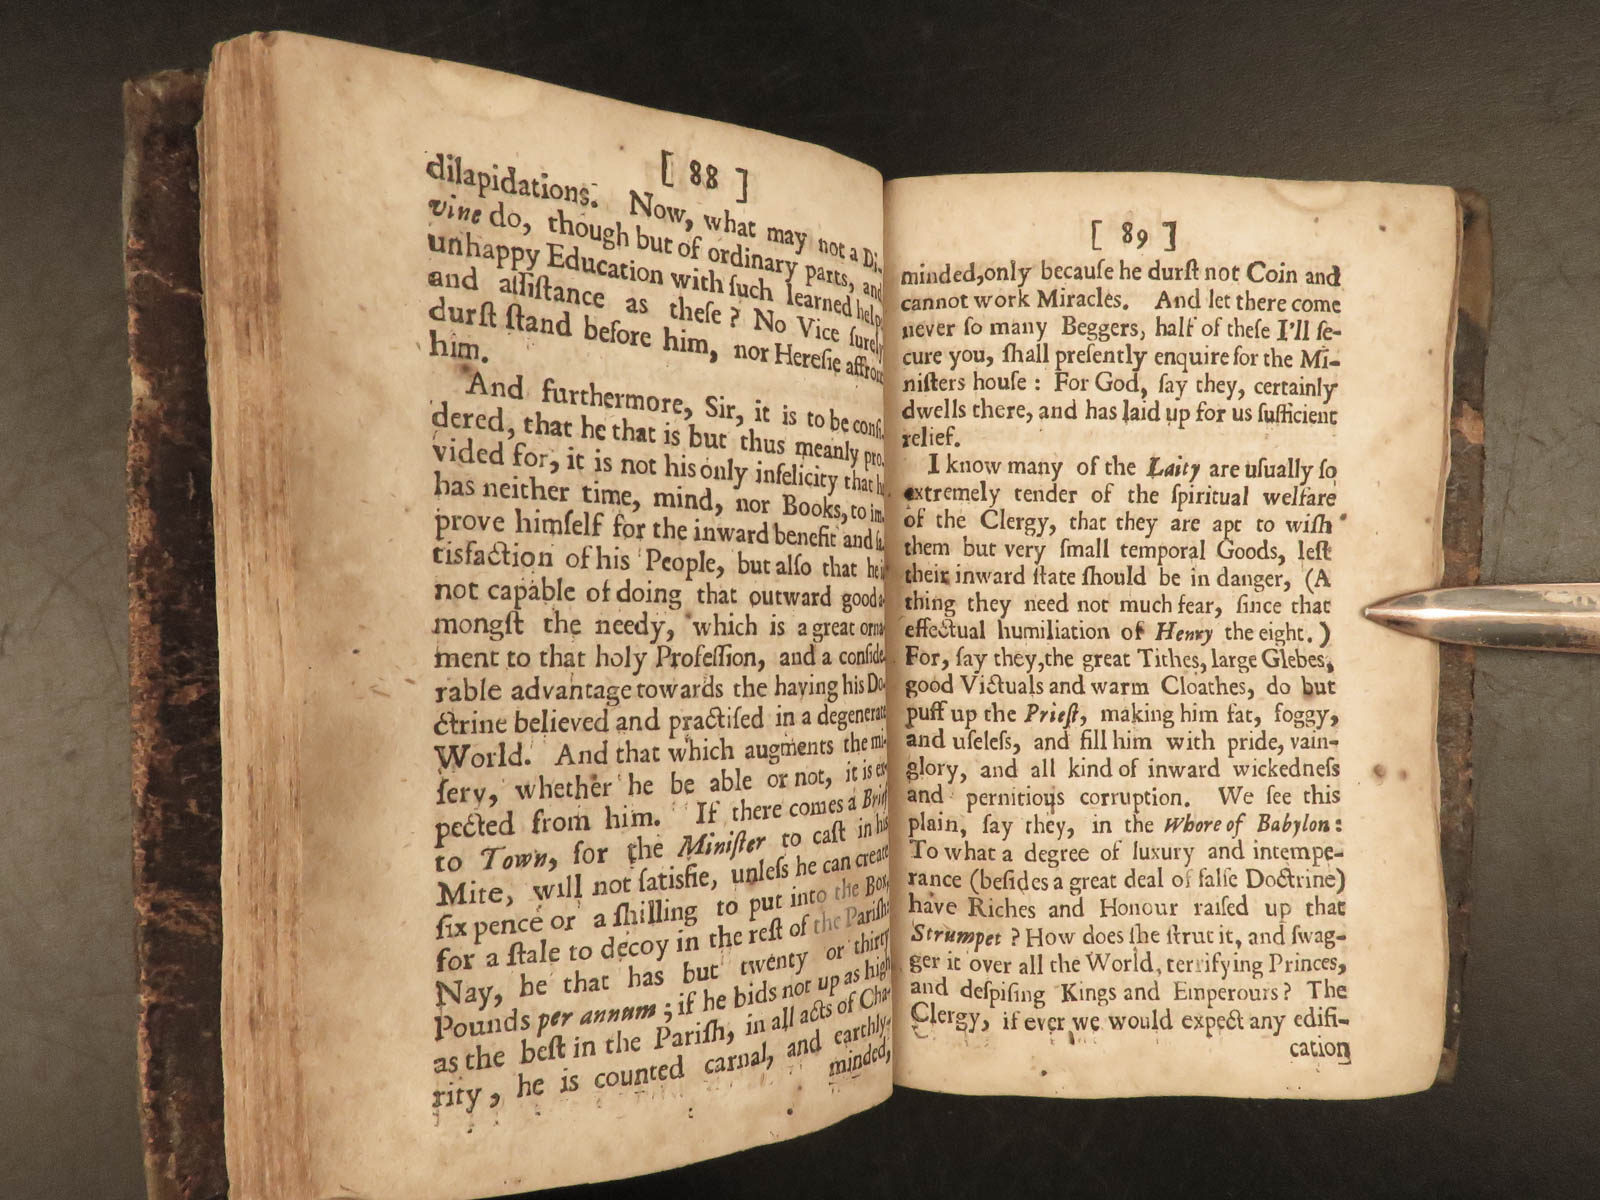 [ 88 ]
dilapidations. Now, what may not a Di-
vine do, though but of ordinary parts, and
unhappy Education with ſuch learned help
and aſſiſtance as theſe? No Vice ſurely
durſt ſtand before him, nor Hereſie affront
him.
And furthermore, Sir, it is to be conſi-
dered, that he that is but thus meanly pro-
vided for, it is not his only infelicity that he
has neither time, mind, nor Books, to im-
prove himſelf for the inward benefit and ſa-
tisfaction of his People, but alſo that he is
not capable of doing that outward good a-
mongſt the needy, which is a great orna-
ment to that holy Profeſſion, and a conſide-
rable advantage towards the having his Do-
ctrine believed and practiſed in a degenerate
World. And that which augments the mi-
ſery, whether he be able or not, it is ex-
pected from him. If there comes a Brief
to Town, for the Miniſter to caſt in his
Mite, will not ſatisfie, unleſs he can create
ſix pence or a ſhilling to put into the Box,
for a ſtale to decoy in the reſt of the Pariſh:
Nay, he that has but twenty or thirty
Pounds per annum; if he bids not up as high
as the beſt in the Pariſh, in all acts of Cha-
rity, he is counted carnal, and earthly-
minded,
[ 89 ]
minded, only becauſe he durſt not Coin and
cannot work Miracles. And let there come
never ſo many Beggers, half of theſe I'll ſe-
cure you, ſhall preſently enquire for the Mi-
niſters houſe: For God, ſay they, certainly
dwells there, and has laid up for us ſufficient
relief.
I know many of the Laity are uſually ſo
extremely tender of the ſpiritual welfare
of the Clergy, that they are apt to wiſh
them but very ſmall temporal Goods, leſt
their inward ſtate ſhould be in danger, (A
thing they need not much fear, ſince that
effectual humiliation of Henry the eight.)
For, ſay they, the great Tithes, large Glebes,
good Victuals and warm Cloathes, do but
puff up the Prieſt, making him fat, foggy,
and uſeleſs, and fill him with pride, vain-
glory, and all kind of inward wickedneſs
and pernitious corruption. We ſee this
plain, ſay they, in the Whore of Babylon:
To what a degree of luxury and intempe-
rance (beſides a great deal of falſe Doctrine)
have Riches and Honour raiſed up that
Strumpet? How does ſhe ſtrut it, and ſwag-
ger it over all the World, terrifying Princes,
and deſpiſing Kings and Emperours? The
Clergy, if ever we would expect any edifi-
cation